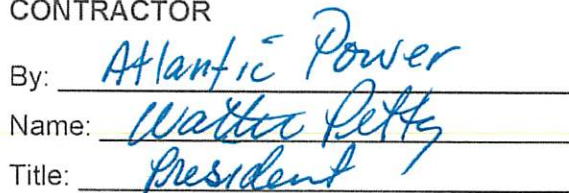 CONTRACTOR
By: Atlantic Power
Name: Walter Petty
Title: President